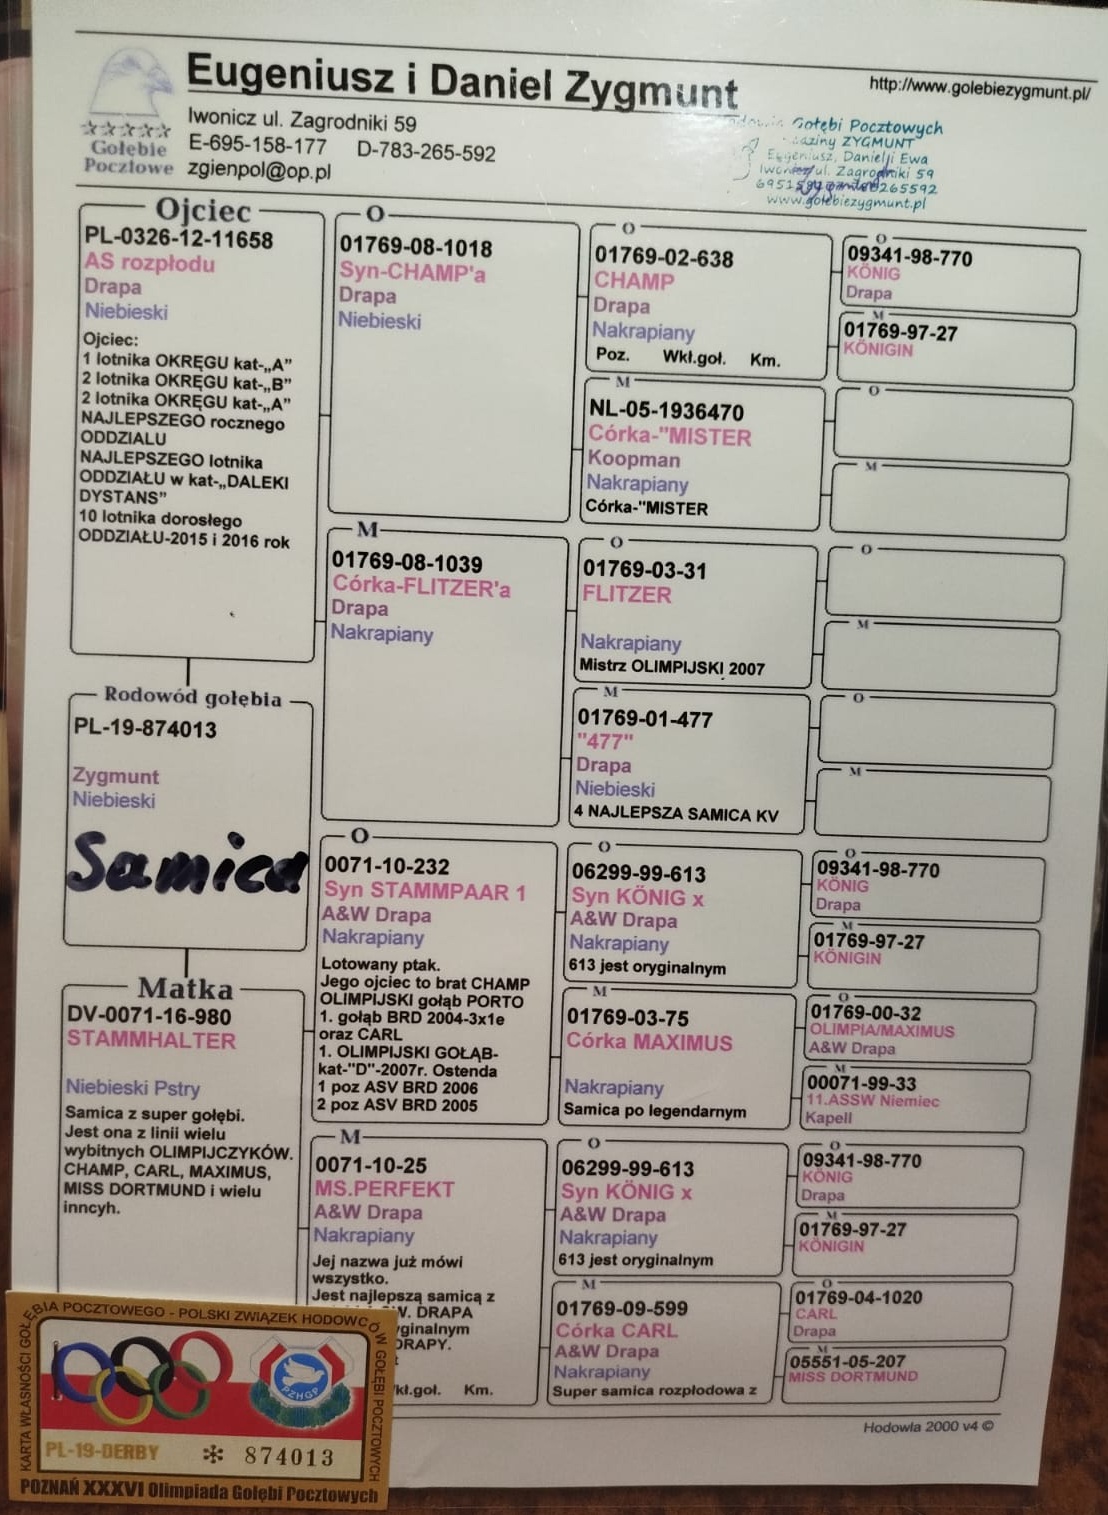 Eugeniusz i Daniel Zygmunt
http://www.golebiezygmunt.pl/
Iwonicz ul. Zagrodniki 59
E-695-158-177 D-783-265-592
zgienpol@op.pl
Gołębie
Pocztowe
Gołębi Pocztowych
ZYGMUNT
Eugeniusz, Daniel i Ewa
ul. Zagrodniki 59
www.golebiezygmunt.pl
Ojciec
PL-0326-12-11658
AS rozpłodu
Drapa
Niebieski
Ojciec:
1 lotnika OKRĘGU kat-„A”
2 lotnika OKRĘGU kat-„B”
2 lotnika OKRĘGU kat-„A”
NAJLEPSZEGO rocznego
ODDZIALU
NAJLEPSZEGO lotnika
ODDZIAŁU w kat-„DALEKI
DYSTANS”
10 lotnika dorosłego
ODDZIAŁU-2015 i 2016 rok
Rodowód gołębia
PL-19-874013
Zygmunt
Niebieski
Samica
Matka
DV-0071-16-980
STAMMHALTER
Niebieski Pstry
Samica z super gołębi.
Jest ona z linii wielu
wybitnych OLIMPIJCZYKÓW.
CHAMP, CARL, MAXIMUS,
MISS DORTMUND i wielu
inncyh.
O
01769-08-1018
Syn-CHAMP'a
Drapa
Niebieski
M
01769-08-1039
Córka-FLITZER'a
Drapa
Nakrapiany
O
0071-10-232
Syn STAMMPAAR 1
A&W Drapa
Nakrapiany
Lotowany ptak.
Jego ojciec to brat CHAMP
OLIMPIJSKI gołąb PORTO
1. gołąb BRD 2004-3x1e
oraz CARL
1. OLIMPIJSKI GOŁĄB-
kat-"D"-2007r. Ostenda
1 poz ASV BRD 2006
2 poz ASV BRD 2005
M
0071-10-25
MS.PERFEKT
A&W Drapa
Nakrapiany
Jej nazwa już mówi
wszystko.
Jest najlepszą samicą z
W. DRAPA
yginalnym
DRAPY.
kł.goł. Km.
O
01769-02-638
CHAMP
Drapa
Nakrapiany
Poz. Wkł.goł. Km.
M
NL-05-1936470
Córka-"MISTER
Koopman
Nakrapiany
Córka-"MISTER
O
01769-03-31
FLITZER
Nakrapiany
Mistrz OLIMPIJSKI 2007
M
01769-01-477
"477"
Drapa
Niebieski
4 NAJLEPSZA SAMICA KV
O
06299-99-613
Syn KÖNIG x
A&W Drapa
Nakrapiany
613 jest oryginalnym
M
01769-03-75
Córka MAXIMUS
Nakrapiany
Samica po legendarnym
O
06299-99-613
Syn KÖNIG x
A&W Drapa
Nakrapiany
613 jest oryginalnym
M
01769-09-599
Córka CARL
A&W Drapa
Nakrapiany
Super samica rozpłodowa z
O
09341-98-770
KÖNIG
Drapa
M
01769-97-27
KÖNIGIN
O
M
O
M
O
M
O
09341-98-770
KÖNIG
Drapa
M
01769-97-27
KÖNIGIN
O
01769-00-32
OLIMPIA/MAXIMUS
A&W Drapa
M
00071-99-33
11.ASSW Niemiec
Kapell
O
09341-98-770
KÖNIG
Drapa
M
01769-97-27
KÖNIGIN
O
01769-04-1020
CARL
Drapa
M
05551-05-207
MISS DORTMUND
Hodowla 2000 v4 ©
KARTA WŁASNOŚCI GOŁĘBIA POCZTOWEGO - POLSKI ZWIĄZEK HODOWCÓW GOŁĘBI POCZTOWYCH
PZHGP
PL-19-DERBY * 874013
POZNAŃ XXXVI Olimpiada Gołębi Pocztowych